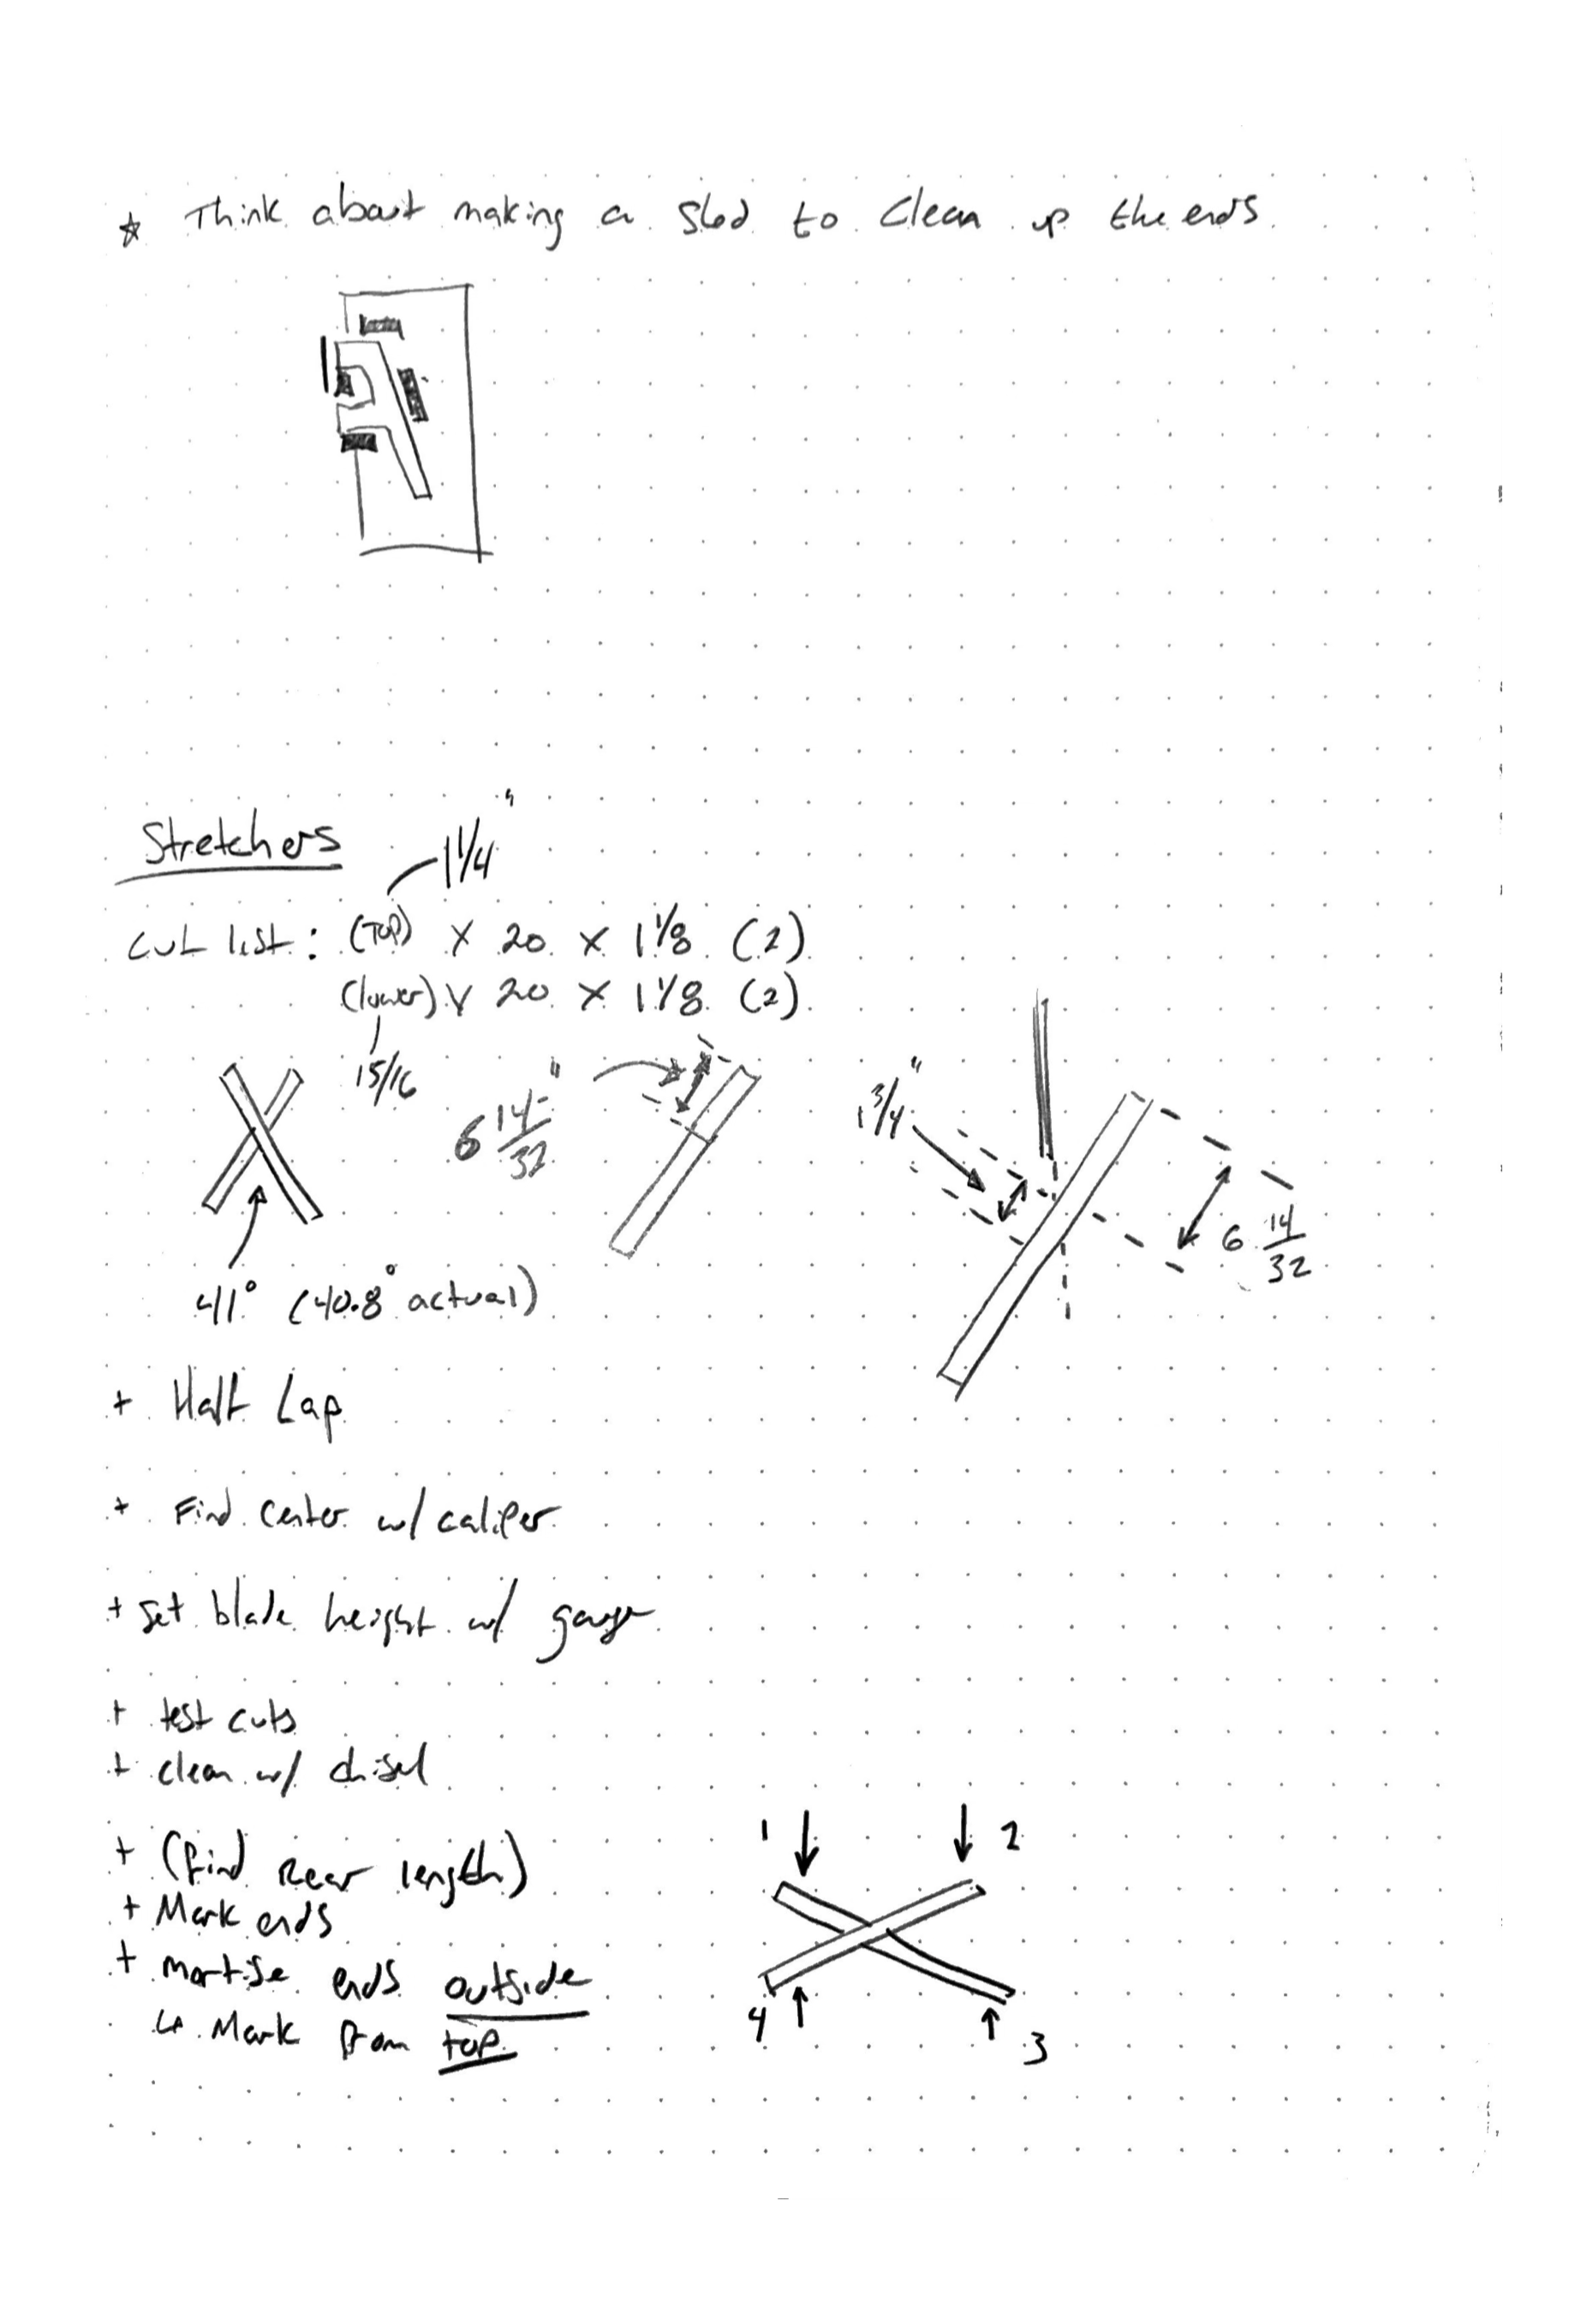 ☆ Think about making a sled to clean up the ends.
Stretchers
1 1/4"
cut list: (TOP) X 20 X 1 1/8 (2)
(lower) X 20 X 1 1/8 (2)
15/16
6 14/32"
1 3/4"
6 14/32
41° (40.8° actual)
+ Half Lap
+ Find center w/ caliper
+ set blade height w/ gauge
+ test cuts
+ clean w/ chisel
+ (find Rear length)
+ Mark ends
+ mortise ends outside
↳ Mark from top
1
2
4
3